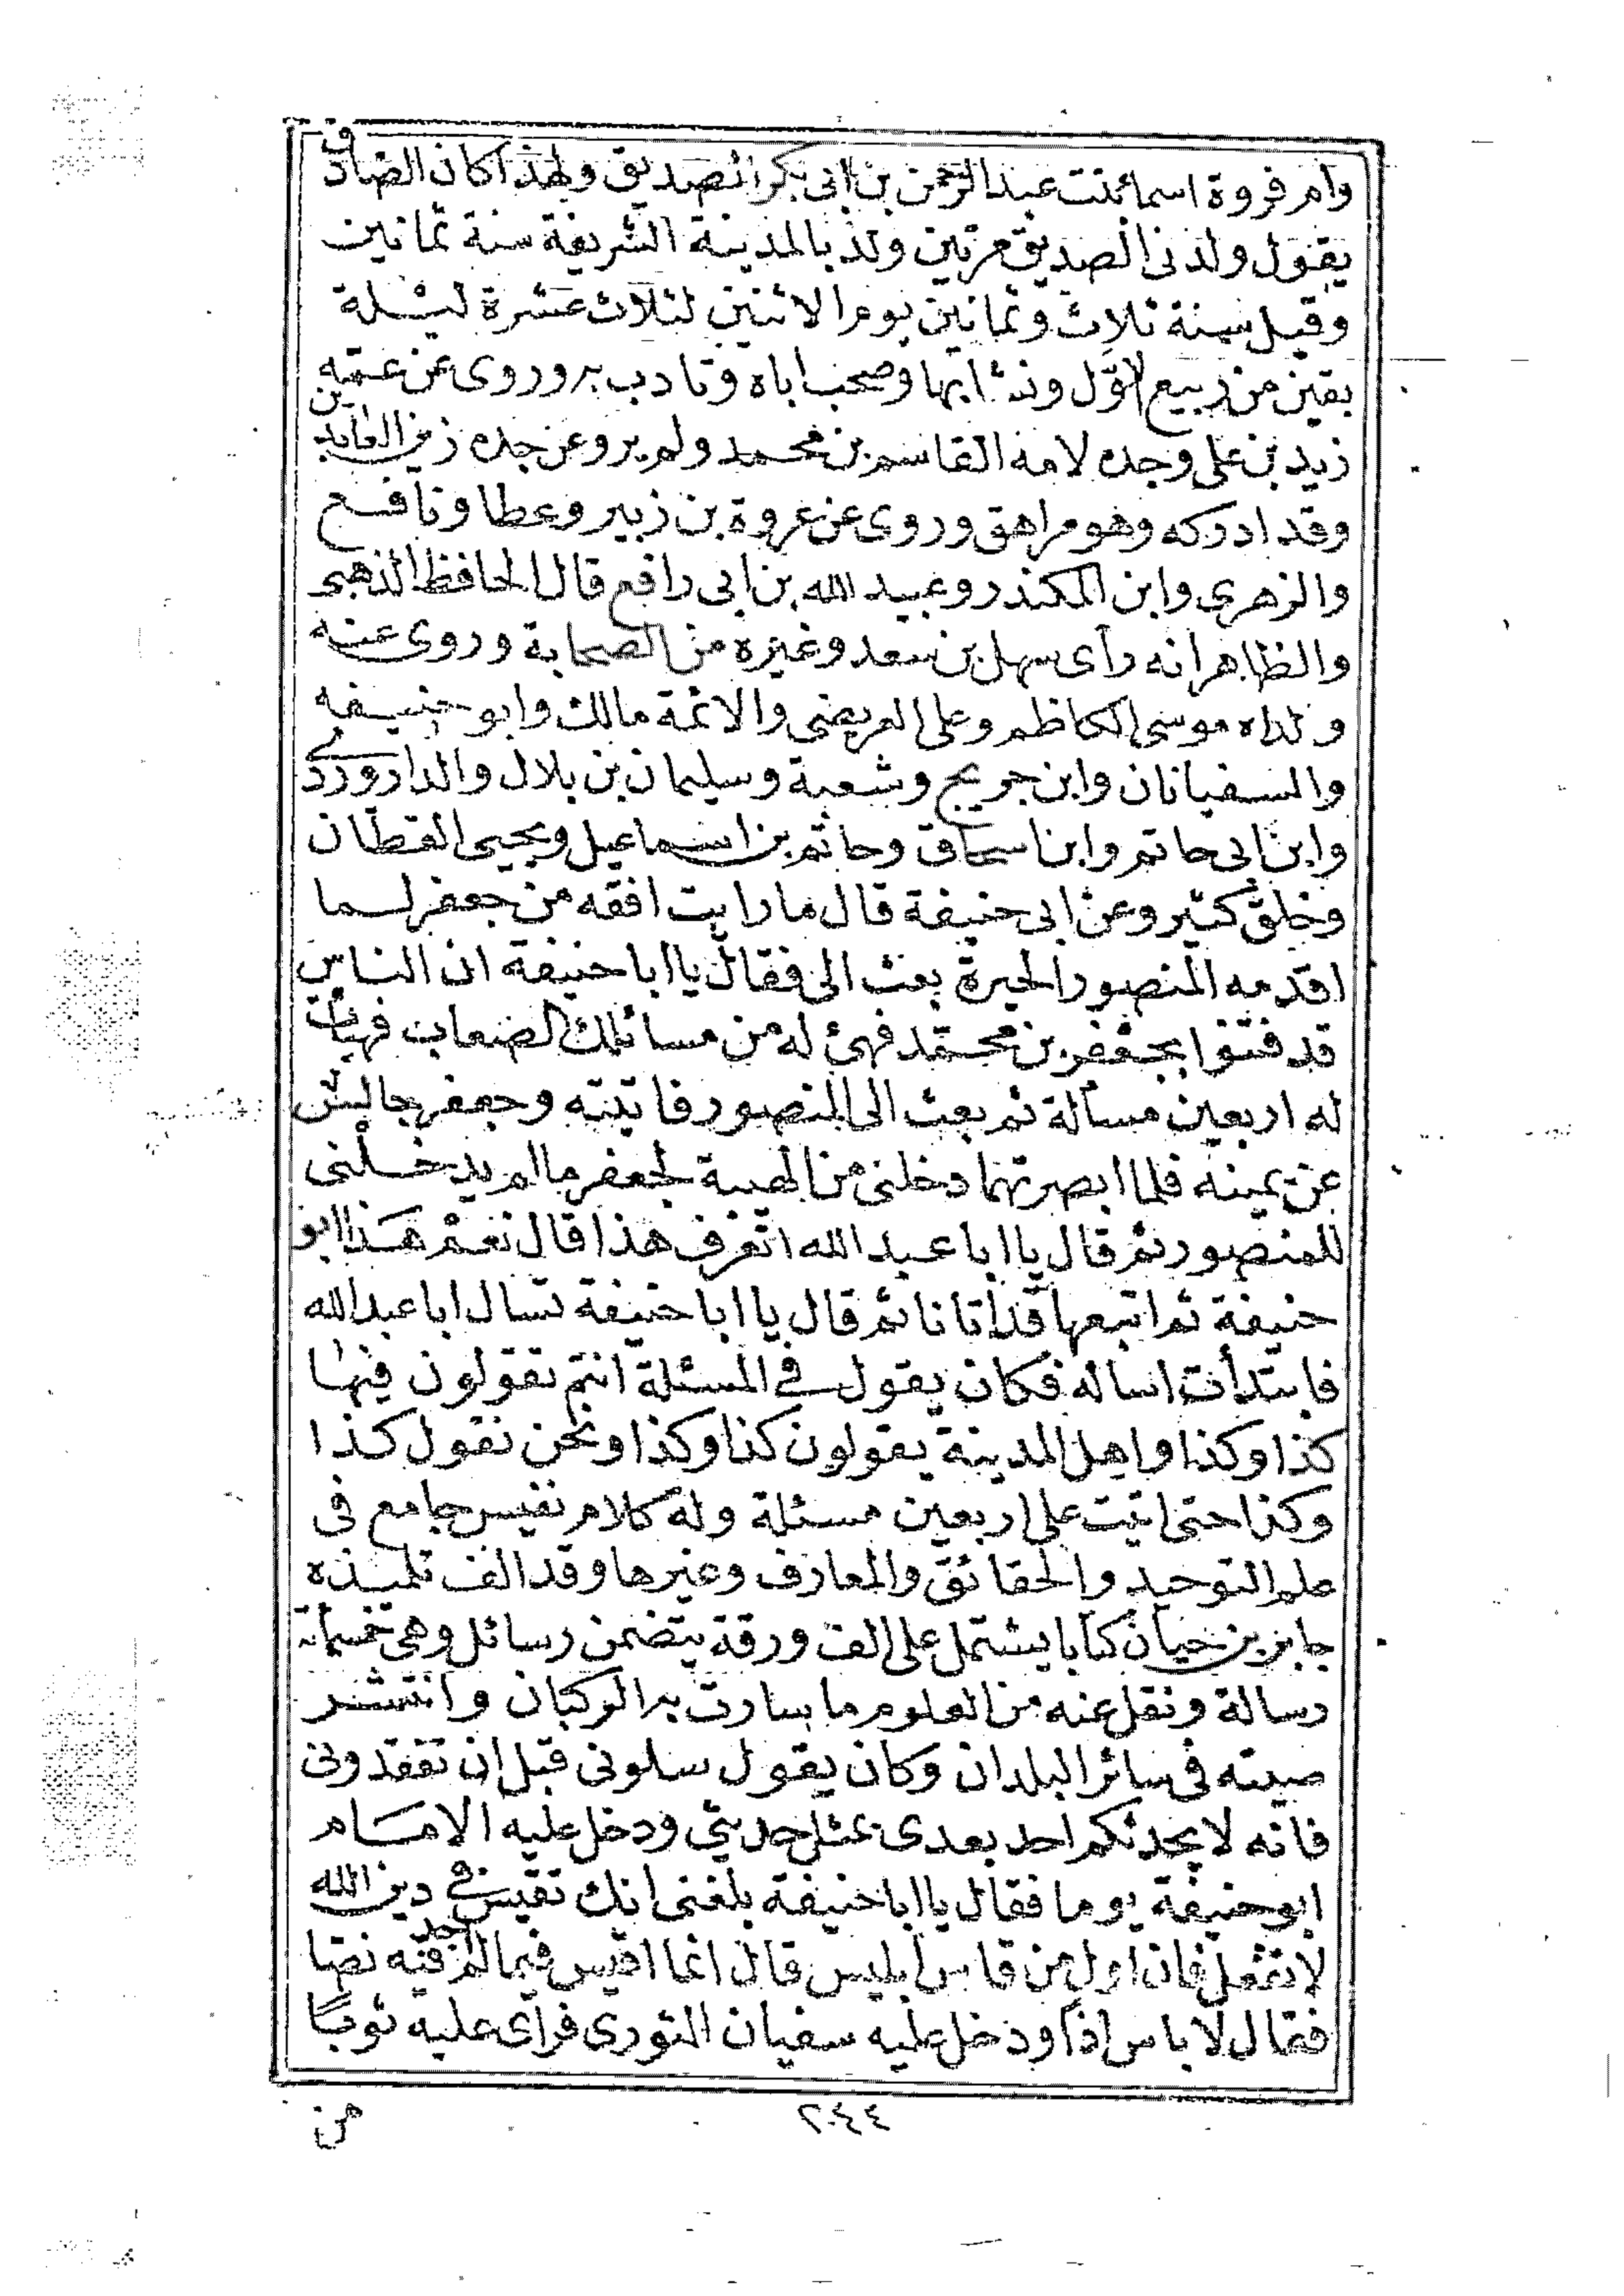 وام فروة اسما بنت عبد الرحمن بن ابى بكر الصديق ولهذا كان الصادق
يقول ولدنى الصديق مرتين ولد بالمدينة الشريفة سنة ثمانين
وقيل سنة ثلاث وثمانين يوم الاثنين لثلاث عشرة ليلة
بقين من ربيع الاول ونشا بها وصحب اباه وتادب به وروى عن عمه
زيد بن على وجده لامه القاسم بن محمد ولم يرو عن جده زين العابدين
وقد ادركه وهو مراهق وروى عن عروة بن زبير وعطا ونافع
والزهرى وابن المكندر وعبيد الله بن ابى رافع قال الحافظ الذهبى
والظاهر انه رآى سهل بن سعد وغيره من الصحابة وروى عنه
ولداه موسى الكاظم وعلى العريضى والائمة مالك وابو حنيفه
والسفيانان وابن جريج وشعبة وسليمان بن بلال والداروردى
وابن ابى حاتم وابن اسحاق وحاتم بن اسماعيل ويحيى القطان
وخلق كثير وعن ابى حنيفة قال ما رايت افقه من جعفر لما
اقدمه المنصور الحيرة بعث الى فقال يا ابا حنيفة ان الناس
قد فتنوا بجعفر بن محمد فهئ له من مسائلك الصعاب فهيأت
له اربعين مسألة ثم بعث الى المنصور فاتيته وجعفر جالس
عن يمينه فلما ابصرتهما دخلنى من الهيبة لجعفر ما لم يدخلنى
للمنصور ثم قال يا ابا عبد الله اتعرف هذا قال نعم هذا ابو
حنيفة ثم اتبعها قد اتانا ثم قال يا ابا حنيفة تسال ابا عبد الله
فابتدأت اساله فكان يقول فى المسئلة انتم تقولون فيها
كذا وكذا واهل المدينة يقولون كذا وكذا ونحن نقول كذا
وكذا حتى اتيت على اربعين مسئلة وله كلام نفيس جامع فى
علم التوحيد والحقائق والمعارف وغيرها وقد الف تلميذه
جابر بن حيان كتابا يشتمل على الف ورقة يتضمن رسائل وهى خمسمائة
رسالة ونقل عنه من العلوم ما سارت به الركبان وانتشر
صيته فى سائر البلدان وكان يقول سلونى قبل ان تفقدونى
فانه لا يحدثكم احد بعدى بمثل حديثى ودخل عليه الامام
ابو حنيفة يوما فقال يا ابا حنيفة بلغنى انك تقيس فى دين الله
لا تفعل فان اول من قاس ابليس قال انما اقيس فيما لم اجد فيه نصا
فقال لا باس اذاً ودخل عليه سفيان الثورى فرآى عليه ثوبًا
من
٢٠٤٤